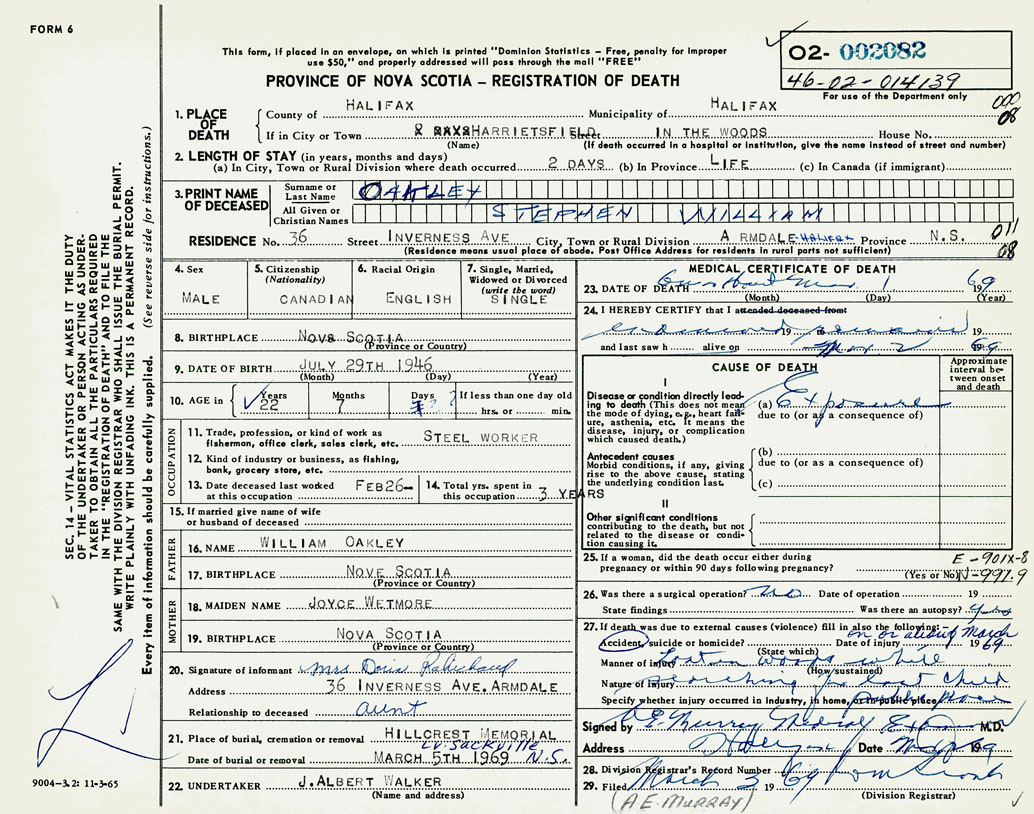 FORM 6
This form, if placed in an envelope, on which is printed "Dominion Statistics – Free, penalty for improper
use $50," and properly addressed will pass through the mail "FREE"
PROVINCE OF NOVA SCOTIA – REGISTRATION OF DEATH
O2- 002082
46-02-014139
For use of the Department only
000
08
1. PLACE OF DEATH
County of HALIFAX Municipality of HALIFAX
If in City or Town HARRIETSFIELD. IN THE WOODS House No.
(Name) (If death occurred in a hospital or institution, give the name instead of street and number)
2. LENGTH OF STAY (in years, months and days)
(a) In City, Town or Rural Division where death occurred 2 DAYS (b) In Province LIFE (c) In Canada (if immigrant)
3. PRINT NAME OF DECEASED
Surname or Last Name OAKLEY
All Given or Christian Names STEPHEN WILLIAM
RESIDENCE No. 36 Street INVERNESS AVE City, Town or Rural Division ARMDALE-HALIFAX Province N.S.
011
08
(Residence means usual place of abode. Post Office Address for residents in rural parts not sufficient)
4. Sex
MALE
5. Citizenship
(Nationality)
CANADIAN
6. Racial Origin
ENGLISH
7. Single, Married,
Widowed or Divorced
(write the word)
SINGLE
8. BIRTHPLACE NOVA SCOTIA
(Province or Country)
9. DATE OF BIRTH JULY 29TH 1946
(Month) (Day) (Year)
10. AGE in Years 22 Months 7 Days If less than one day old
hrs. or min.
OCCUPATION
11. Trade, profession, or kind of work as
fisherman, office clerk, sales clerk, etc. STEEL WORKER
12. Kind of industry or business, as fishing,
bank, grocery store, etc.
13. Date deceased last worked
at this occupation FEB26-
14. Total yrs. spent in
this occupation 3 YEARS
15. If married give name of wife
or husband of deceased
FATHER
16. NAME WILLIAM OAKLEY
17. BIRTHPLACE NOVE SCOTIA
(Province or Country)
MOTHER
18. MAIDEN NAME JOYCE WETMORE
19. BIRTHPLACE NOVA SCOTIA
(Province or Country)
20. Signature of informant Mrs Doris Robichaud
Address 36 INVERNESS AVE. ARMDALE
Relationship to deceased aunt
21. Place of burial, cremation or removal HILLCREST MEMORIAL
Lr. Sackville N.S.
Date of burial or removal MARCH 5TH 1969
22. UNDERTAKER J. ALBERT WALKER
(Name and address)
MEDICAL CERTIFICATE OF DEATH
23. DATE OF DEATH on or about Mar 1 1969
(Month) (Day) (Year)
24. I HEREBY CERTIFY that I attended deceased from:
examined 19 to remains 19
and last saw h alive on Mar 2 69
CAUSE OF DEATH
Approximate
interval be-
tween onset
and death
I
Disease or condition directly lead-
ing to death (This does not mean
the mode of dying, e.g., heart fail-
ure, asthenia, etc. It means the
disease, injury, or complication
which caused death.)
(a) Exposure
due to (or as a consequence of)
Antecedent causes
Morbid conditions, if any, giving
rise to the above cause, stating
the underlying condition last.
(b)
due to (or as a consequence of)
(c)
II
Other significant conditions
contributing to the death, but not
related to the disease or condi-
tion causing it.
25. If a woman, did the death occur either during
pregnancy or within 90 days following pregnancy?
(Yes or No)
E-901X-8
N-991.9
26. Was there a surgical operation? no Date of operation 19
State findings Was there an autopsy? yes
27. If death was due to external causes (violence) fill in also the following:–
Accident, suicide or homicide? Date of injury on or about March 1 1969
(State which)
Manner of injury Lost in woods while
(How sustained)
Nature of injury searching for lost child
Specify whether injury occurred in industry, in home, or in public place public place
Signed by A E Murray Medical Examiner M.D.
Address Halifax Date 1969
28. Division Registrar's Record Number
29. Filed March 3 1969
(Division Registrar)
(A.E. MURRAY)
SEC. 14 – VITAL STATISTICS ACT MAKES IT THE DUTY
OF THE UNDERTAKER OR PERSON ACTING AS UNDER-
TAKER TO OBTAIN ALL THE PARTICULARS REQUIRED
IN THE "REGISTRATION OF DEATH" AND TO FILE THE
SAME WITH THE DIVISION REGISTRAR WHO SHALL ISSUE THE BURIAL PERMIT.
WRITE PLAINLY WITH UNFADING INK. THIS IS A PERMANENT RECORD.
Every item of information should be carefully supplied. (See reverse side for instructions.)
9004-3.2: 11-3-65